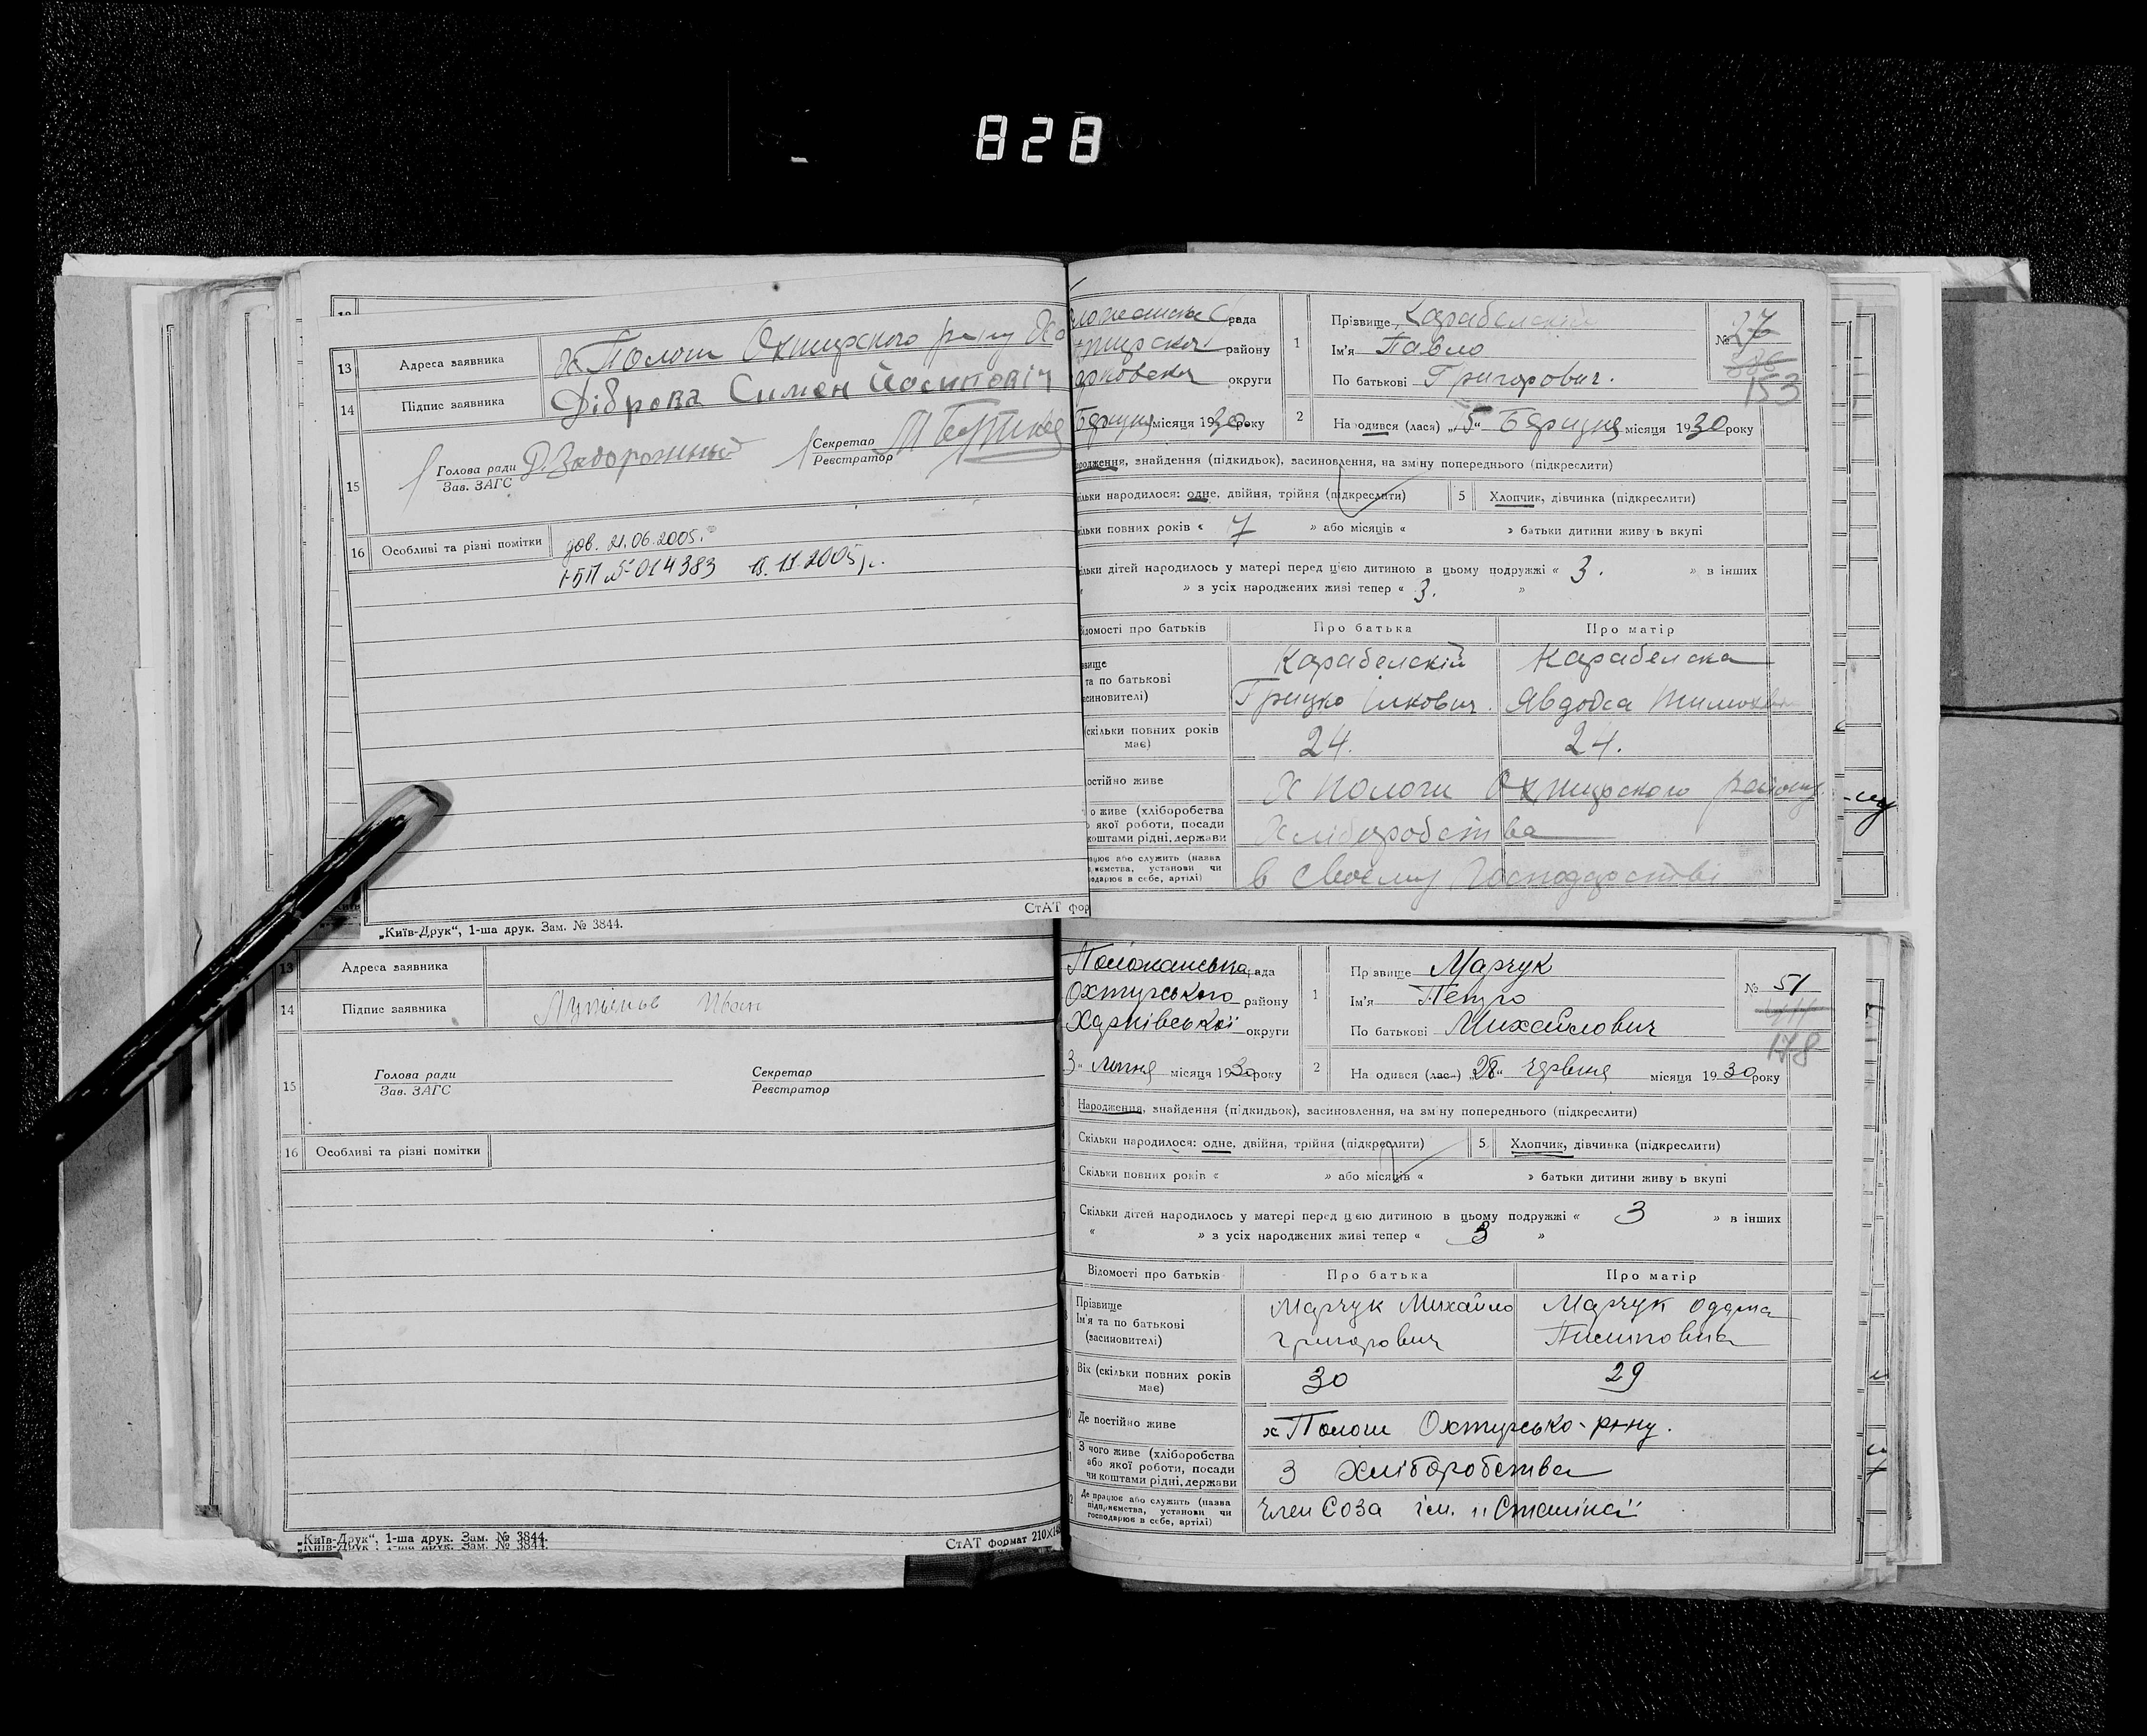 828
13 Адреса заявника х Пологи Охтирского р-ну
14 Підпис заявника Діброва Симен Йосипович
15 Голова ради Д. Задорожный Секретар
Зав. ЗАГС Реєстратор
16 Особливі та різні помітки дов. 21.06.2005.
І-БП № 014383 11.2005р.
СтАТ фор
„Київ-Друк“, 1-ша друк. Зам. № 3844.
рада
району
округи
місяця 1930 року
1 Прізвище Карабелский
Ім'я Павло
По батькові Григорович.
№ 37
153
2 Народився (лася) „15“ Березня місяця 1930 року
родження, знайдення (підкидьок), засиновлення, на зміну попереднього (підкреслити)
ільки народилося: одне, двійня, трійня (підкреслити) 5 Хлопчик, дівчинка (підкреслити)
ільки повних років « 7 » або місяців « » батьки дитини живуть вкупі
ільки дітей народилось у матері перед цією дитиною в цьому подружжі « 3. » в інших
» з усіх народжених живі тепер « 3. »
ідомості про батьків Про батька Про матір
звище Карабелскій Карабелска
та по батькові
синовителі) Грицко Ількович. Явдоха
скільки повних років 24. 24.
має)
остійно живе Х Пологи Охтирского району.
о живе (хліборобства
якої роботи, посади Хліборобства
коштами рідні, держави
ацює або служить (назва
иємства, установи чи в своєму Господарстві
одарює в себе, артілі)
13 Адреса заявника
14 Підпис заявника Іван
15 Голова ради Секретар
Зав. ЗАГС Реєстратор
16 Особливі та різні помітки
„Київ-Друк“, 1-ша друк. Зам. № 3844.
„Київ-Друк“, 1-ша друк. Зам. № 3844.
СтАТ формат 210×148
Положанська рада
Охтирського району
Харківської округи
3“ Липня місяця 1930 року
1 Прізвище Марчук
Ім'я Петро
По батькові Михайлович
№ 51
178
2 Народився (лася) „28“ Червня місяця 1930 року
Народження, знайдення (підкидьок), засиновлення, на зміну попереднього (підкреслити)
Скільки народилося: одне, двійня, трійня (підкреслити) 5 Хлопчик, дівчинка (підкреслити)
Скільки повних років « » або місяців « » батьки дитини живуть вкупі
Скільки дітей народилось у матері перед цією дитиною в цьому подружжі « 3 » в інших
« » з усіх народжених живі тепер « 3 »
Відомості про батьків Про батька Про матір
Прізвище Марчук Михайло Марчук
Ім'я та по батькові
(засиновителі) Григорович
Вік (скільки повних років 30 29
має)
Де постійно живе х Пологи Охтирсько-р-ну.
З чого живе (хліборобства
або якої роботи, посади З Хліборобства
чи коштами рідні, держави
Де працює або служить (назва
підприємства, установи чи Член Соза ім. „Сталіна“
господарює в себе, артілі)